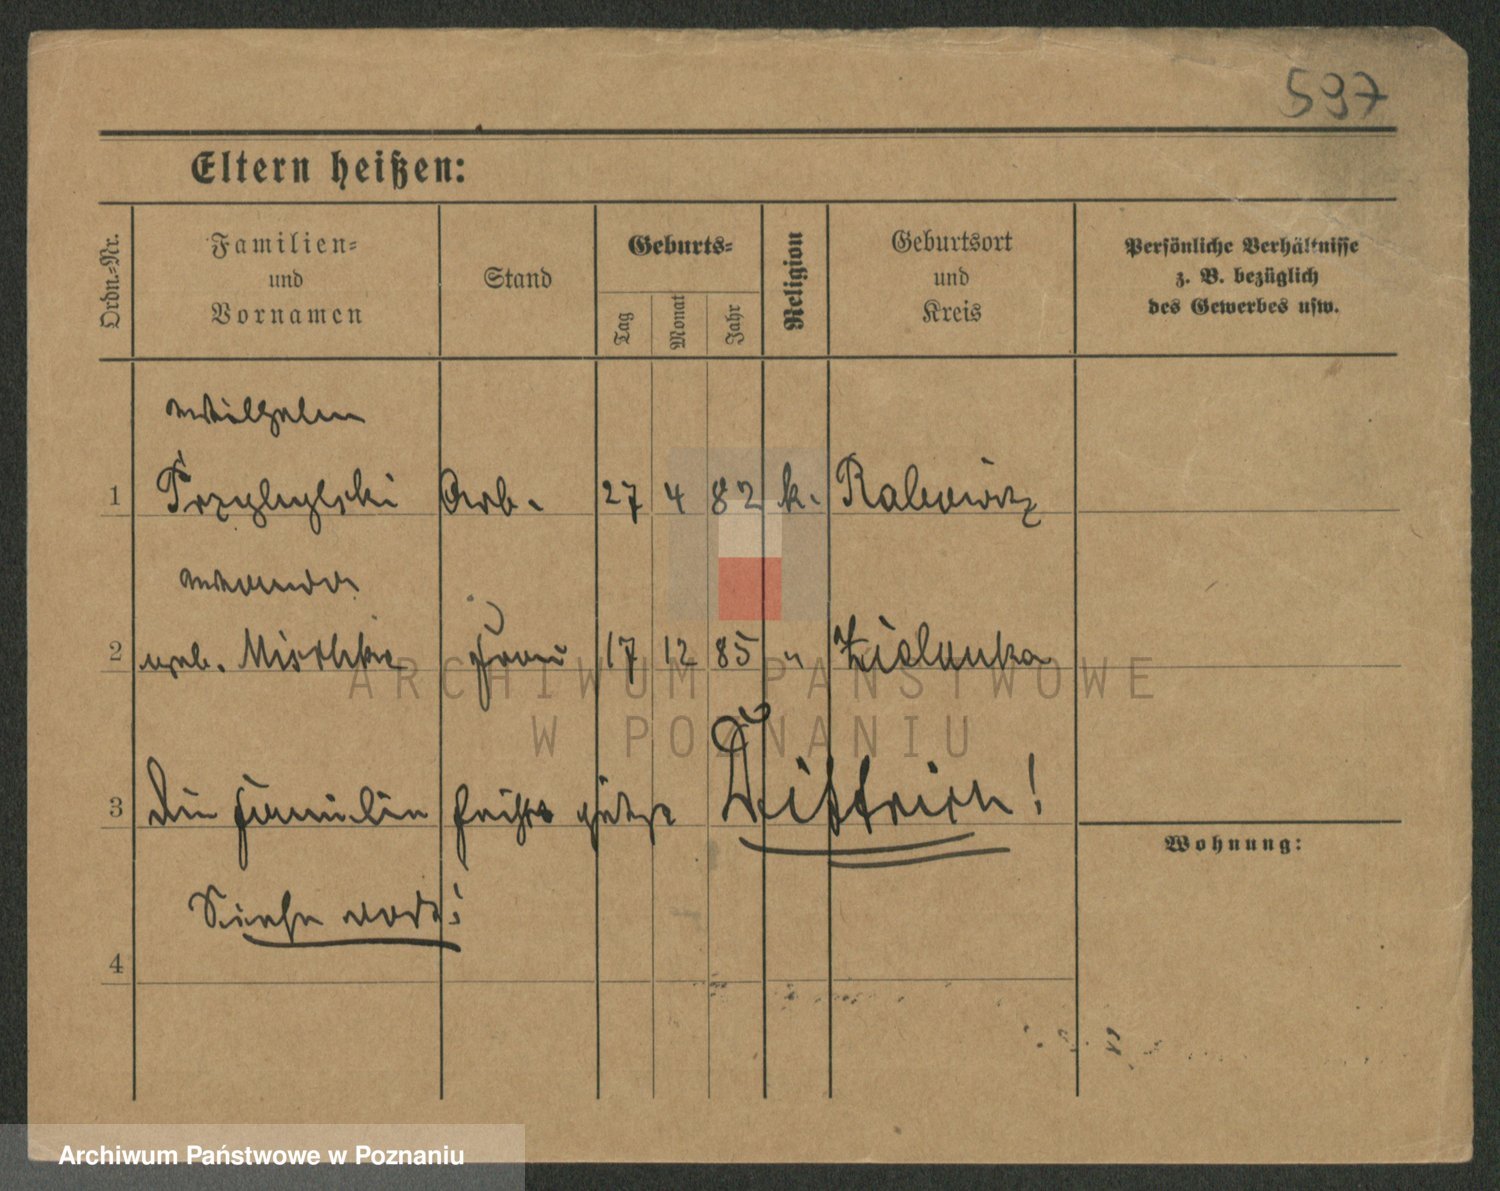 597
Eltern heißen:
Ordn.-Nr.
Familien-
und
Vornamen
Stand
Geburts-
Tag
Monat
Jahr
Religion
Geburtsort
und
Kreis
Persönliche Verhältnisse
z. B. bezüglich
des Gewerbes usw.
Wilhelm
1 Arb. 27 4 82 k. Rakowitz
Wanda
2 geb. Mischke Frau 17 12 85 " Zielonka
3 Die Familie heißt jetzt Dittrich!
Wohnung:
Siehe dort!
4
ARCHIWUM PAŃSTWOWE
W POZNANIU
Archiwum Państwowe w Poznaniu